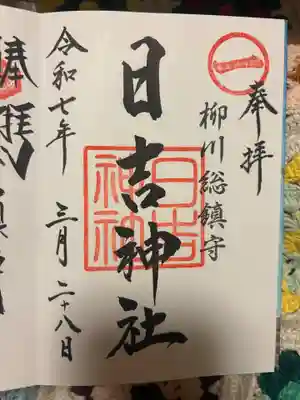 奉拝
柳川総鎮守
日吉神社
令和七年 三月二十八日
一
日吉神社
奉拝